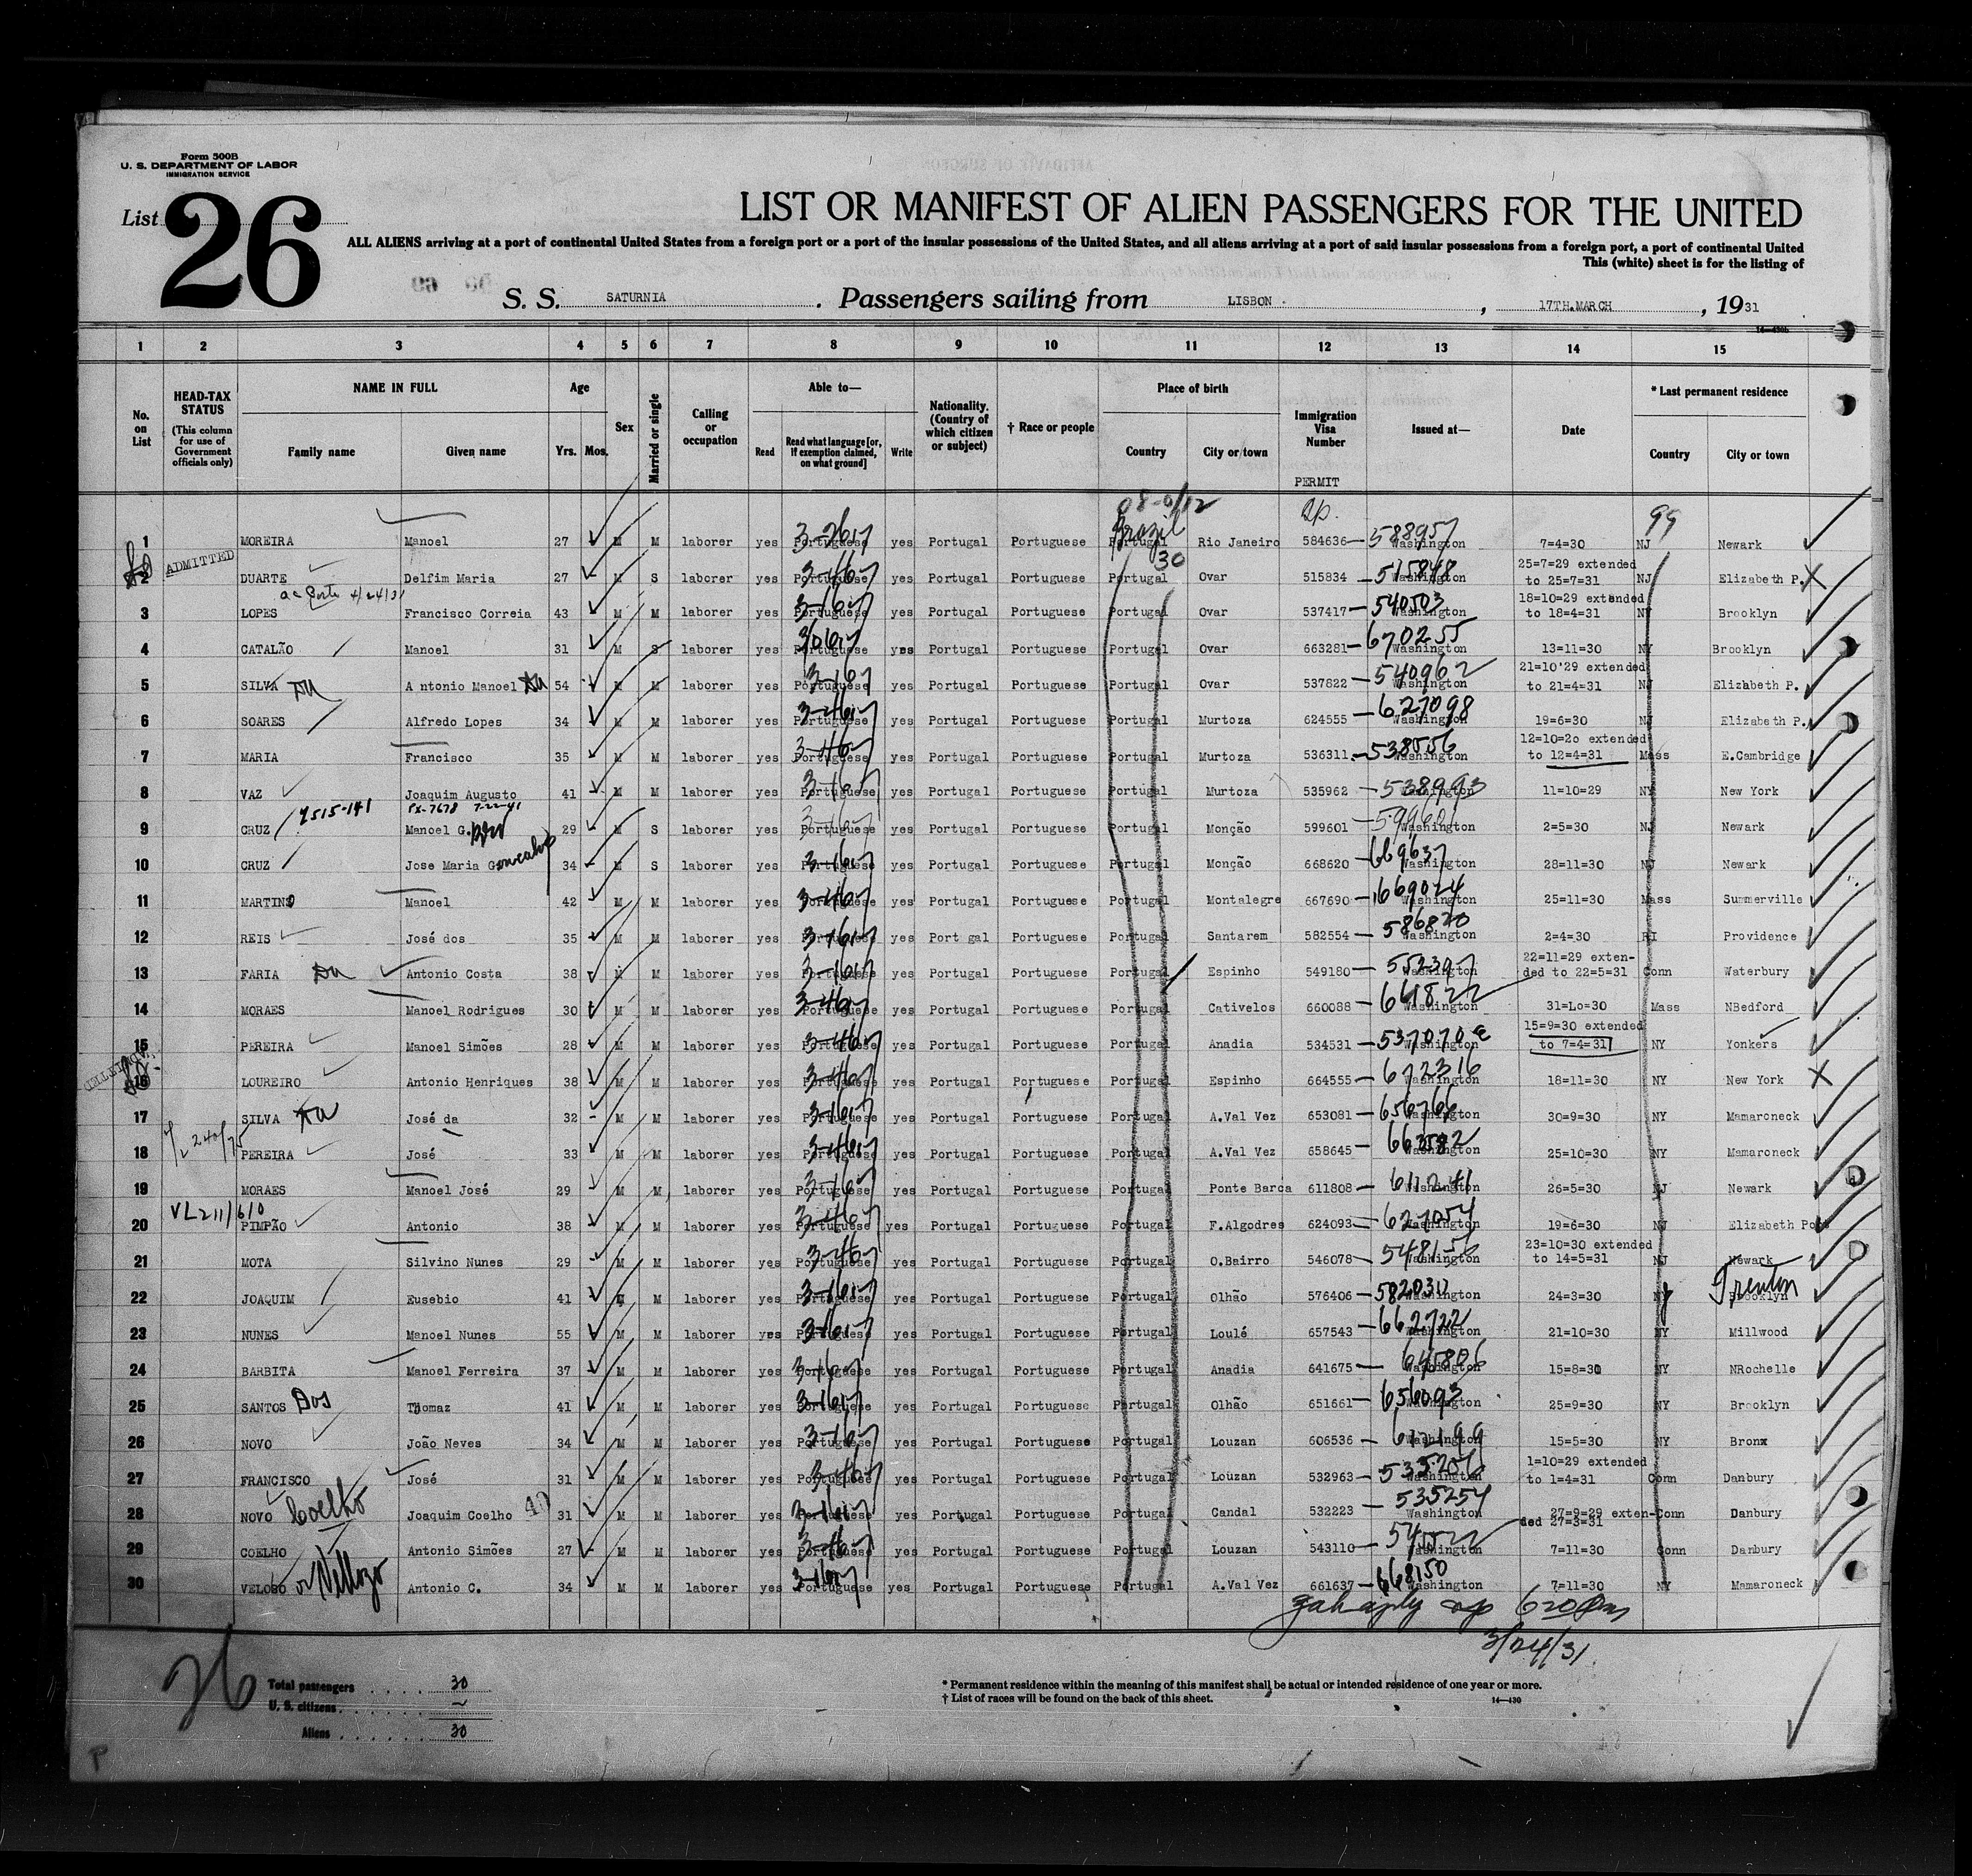 Form 500B
U. S. DEPARTMENT OF LABOR
IMMIGRATION SERVICE
List 26
LIST OR MANIFEST OF ALIEN PASSENGERS FOR THE UNITED
ALL ALIENS arriving at a port of continental United States from a foreign port or a port of the insular possessions of the United States, and all aliens arriving at a port of said insular possessions from a foreign port, a port of continental United
This (white) sheet is for the listing of
S. S. SATURNIA . Passengers sailing from LISBON , 17TH.MARCH , 1931
14—430b
1 2 3 4 5 6 7 8 9 10 11 12 13 14 15
No. on List
HEAD-TAX STATUS (This column for use of Government officials only)
NAME IN FULL Family name Given name
Age Yrs. Mos.
Sex
Married or single
Calling or occupation
Able to— Read Read what language [or, if exemption claimed, on what ground] Write
Nationality. (Country of which citizen or subject)
† Race or people
Place of birth Country City or town
Immigration Visa Number
PERMIT
Issued at—
Date
* Last permanent residence Country City or town
99
1 MOREIRA Manoel 27 M M laborer yes Portuguese yes Portugal Portuguese Portugal Brazil Rio Janeiro 584636 588957 Washington 7=4=30 NJ Newark
ADMITTED
2 DUARTE Delfim Maria 27 M S laborer yes Portuguese yes Portugal Portuguese Portugal Ovar 515834 Washington 25=7=29 extended to 25=7=31 NJ Elizabeth P.
3 LOPES Francisco Correia 43 M M laborer yes Portuguese yes Portugal Portuguese Portugal Ovar 537417 540503 Washington 18=10=29 extended to 18=4=31 NY Brooklyn
4 CATALÃO Manoel 31 M S laborer yes Portuguese yes Portugal Portuguese Portugal Ovar 663281 670255 Washington 13=11=30 NY Brooklyn
5 SILVA Da Antonio Manoel Da 54 M M laborer yes Portuguese yes Portugal Portuguese Portugal Ovar 537822 540962 Washington 21=10'29 extended to 21=4=31 NJ Elizabeth P.
6 SOARES Alfredo Lopes 34 M M laborer yes Portuguese yes Portugal Portuguese Portugal Murtoza 624555 627098 Washington 19=6=30 NJ Elizabeth P.
7 MARIA Francisco 35 M M laborer yes Portuguese yes Portugal Portuguese Portugal Murtoza 536311 538556 Washington 12=10=2o extended to 12=4=31 Mass E.Cambridge
8 VAZ Joaquim Augusto 41 M M laborer yes Portuguese yes Portugal Portuguese Portugal Murtoza 535962 538993 Washington 11=10=29 NY New York
9 CRUZ Manoel G. 29 M S laborer yes Portuguese yes Portugal Portuguese Portugal Monção 599601 Washington 2=5=30 NJ Newark
10 CRUZ Jose Maria Goncalves 34 M S laborer yes Portuguese yes Portugal Portuguese Portugal Monção 668620 669637 Washington 28=11=30 NJ Newark
11 MARTINS Manoel 42 M M laborer yes Portuguese yes Portugal Portuguese Portugal Montalegre 667690 669024 Washington 25=11=30 Mass Summerville
12 REIS José dos 35 M M laborer yes Portuguese yes Port gal Portuguese Portugal Santarem 582554 586820 Washington 2=4=30 RI Providence
13 FARIA Da Antonio Costa 38 M M laborer yes Portuguese yes Portugal Portuguese Portugal Espinho 549180 Washington 22=11=29 exten- ded to 22=5=31 Conn Waterbury
14 MORAES Manoel Rodrigues 30 M M laborer yes Portuguese yes Portugal Portuguese Portugal Cativelos 660088 661822 Washington 31=Lo=30 Mass NBedford
15 PEREIRA Manoel Simões 28 M M laborer yes Portuguese yes Portugal Portuguese Portugal Anadia 534531 537070 Washington 15=9=30 extended to 7=4=31 NY Yonkers
16 LOUREIRO Antonio Henriques 38 M M laborer yes Portuguese yes Portugal Portuguese Portugal Espinho 664555 672316 Washington 18=11=30 NY New York
17 SILVA Da José da 32 M M laborer yes Portuguese yes Portugal Portuguese Portugal A.Val Vez 653081 656766 Washington 30=9=30 NY Mamaroneck
18 PEREIRA José 33 M M laborer yes Portuguese yes Portugal Portuguese Portugal A.Val Vez 658645 Washington 25=10=30 NY Mamaroneck
19 MORAES Manoel José 29 M M laborer yes Portuguese yes Portugal Portuguese Portugal Ponte Barca 611808 Washington 26=5=30 NJ Newark
VL211/610
20 PIMPÃO Antonio 38 M M laborer yes Portuguese yes Portugal Portuguese Portugal F.Algodres 624093 627054 Washington 19=6=30 NJ Elizabeth Port
21 MOTA Silvino Nunes 29 M M laborer yes Portuguese yes Portugal Portuguese Portugal O.Bairro 546078 Washington 23=10=30 extended to 14=5=31 NJ Newark
22 JOAQUIM Eusebio 41 M M laborer yes Portuguese yes Portugal Portuguese Portugal Olhão 576406 Washington 24=3=30 NY Brooklyn Trenton
23 NUNES Manoel Nunes 55 M M laborer yes Portuguese yes Portugal Portuguese Portugal Loulé 657543 662722 Washington 21=10=30 NY Millwood
24 BARBITA Manoel Ferreira 37 M M laborer yes Portuguese yes Portugal Portuguese Portugal Anadia 641675 Washington 15=8=30 NY NRochelle
25 SANTOS Dos Thomaz 41 M M laborer yes Portuguese yes Portugal Portuguese Portugal Olhão 651661 656093 Washington 25=9=30 NY Brooklyn
26 NOVO João Neves 34 M M laborer yes Portuguese yes Portugal Portuguese Portugal Louzan 606536 Washington 15=5=30 NY Bronx
27 FRANCISCO José 31 M M laborer yes Portuguese yes Portugal Portuguese Portugal Louzan 532963 Washington 1=10=29 extended to 1=4=31 Conn Danbury
28 NOVO Coelho Joaquim Coelho 40 31 M M laborer yes Portuguese yes Portugal Portuguese Portugal Candal 532223 535254 Washington 27=9=29 exten- ded 27=3=31 Conn Danbury
29 COELHO Antonio Simões 27 M M laborer yes Portuguese yes Portugal Portuguese Portugal Louzan 543110 Washington 7=11=30 Conn Danbury
30 VELOSO or Vellozo Antonio C. 34 M M laborer yes Portuguese yes Portugal Portuguese Portugal A.Val Vez 661637 668150 Washington 7=11=30 NY Mamaroneck
3/24/31
26
Total passengers 30
U. S. citizens —
Aliens 30
* Permanent residence within the meaning of this manifest shall be actual or intended residence of one year or more.
† List of races will be found on the back of this sheet.
14—430
P